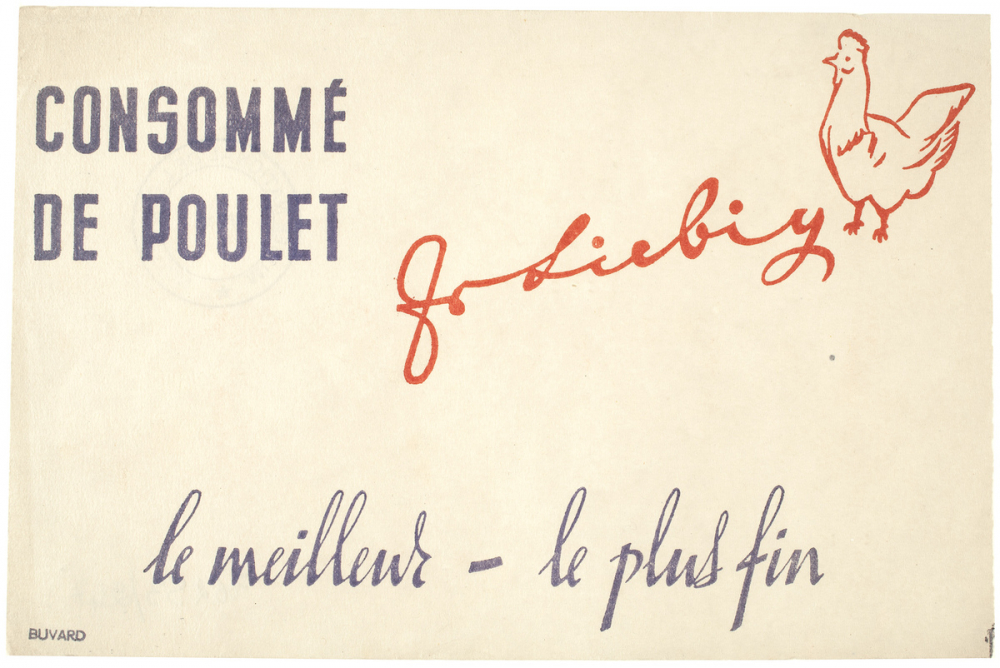 CONSOMMÉ
DE POULET
Jr Liebig
le meilleur - le plus fin
BUVARD